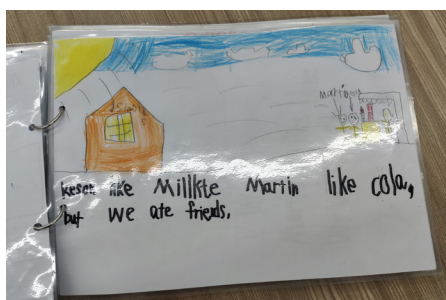 like Millkte Martin like cola,
but we ate friends.